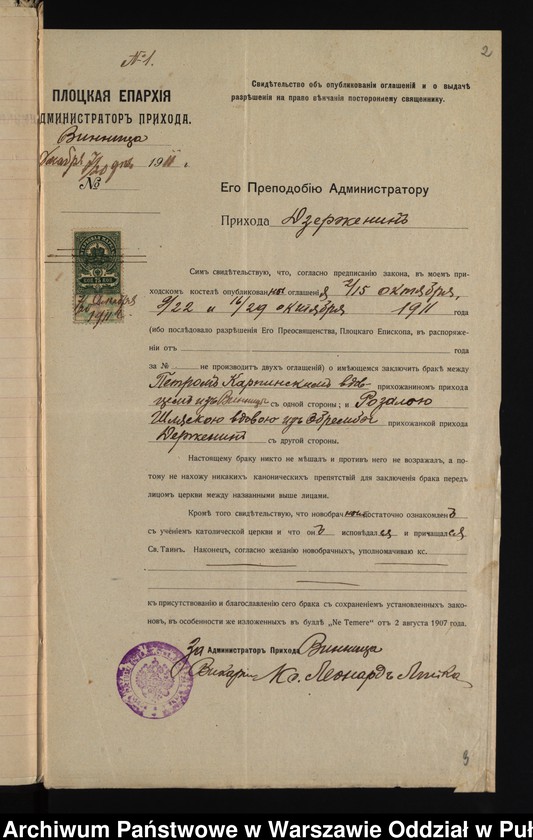 №1.
2
ПЛОЦКАЯ ЕПАРХІЯ
АДМИНИСТРАТОРЪ ПРИХОДА.
Винница
1911 г.
№
Свидѣтельство объ опубликованіи оглашеній и о выдачѣ
разрѣшенія на право вѣнчанія постороннему священнику.
Его Преподобію Администратору
Прихода Дзерженинъ
Симъ свидѣтельствую, что, согласно предписанію закона, въ моемъ при-
ходскомъ костелѣ опубликованны оглашенія 2/15 октября,
9/22 и 16/29 октября 1911 года
(ибо послѣдовало разрѣшенія Его Преосвященства, Плоцкаго Епископа, въ распоряже-
ніи отъ года
за № не производитъ двухъ оглашеній) о имѣющемся заключить бракѣ между
Петромъ Карпинскимъ вдов-
цемъ изъ Винницы прихожаниномъ прихода
съ одной стороны; и Розалою
вдовою изъ прихожанкой прихода
Дзерженинъ съ другой стороны.
Настоящему браку никто не мѣшалъ и противъ него не возражалъ, а по-
тому не нахожу никакихъ каноническихъ препятствій для заключенія брака передъ
лицомъ церкви между названными выше лицами.
Кромѣ того свидѣтельствую, что новобрачный достаточно ознакомленъ
съ ученіемъ католической церкви и что онъ исповѣдался и причащался
Св. Таинъ. Наконецъ, согласно желанію новобрачныхъ, уполномачиваю кс.
къ присутствованію и благословленію сего брака съ сохраненіемъ установленныхъ зако-
новъ, въ особенности же изложенныхъ въ буллѣ „Ne Temere" отъ 2 августа 1907 года.
За Администраторъ Прихода Винница
Викарій Кс. Леонардъ
3
Archiwum Państwowe w Warszawie Oddział w Puł